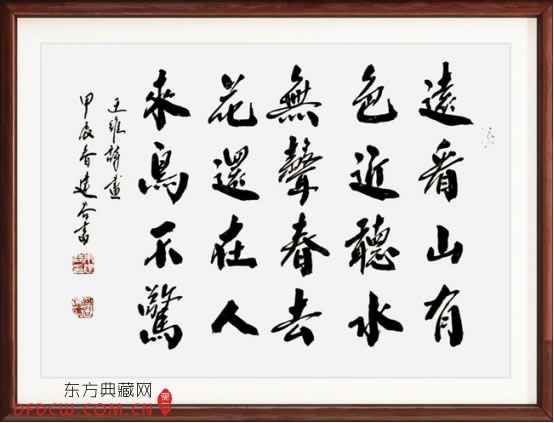 遠看山有
色近聽水
無聲春去
花還在人
來鳥不驚
王維詩畫
甲辰春建谷書
东方典藏网
DFDCW.COM.CN